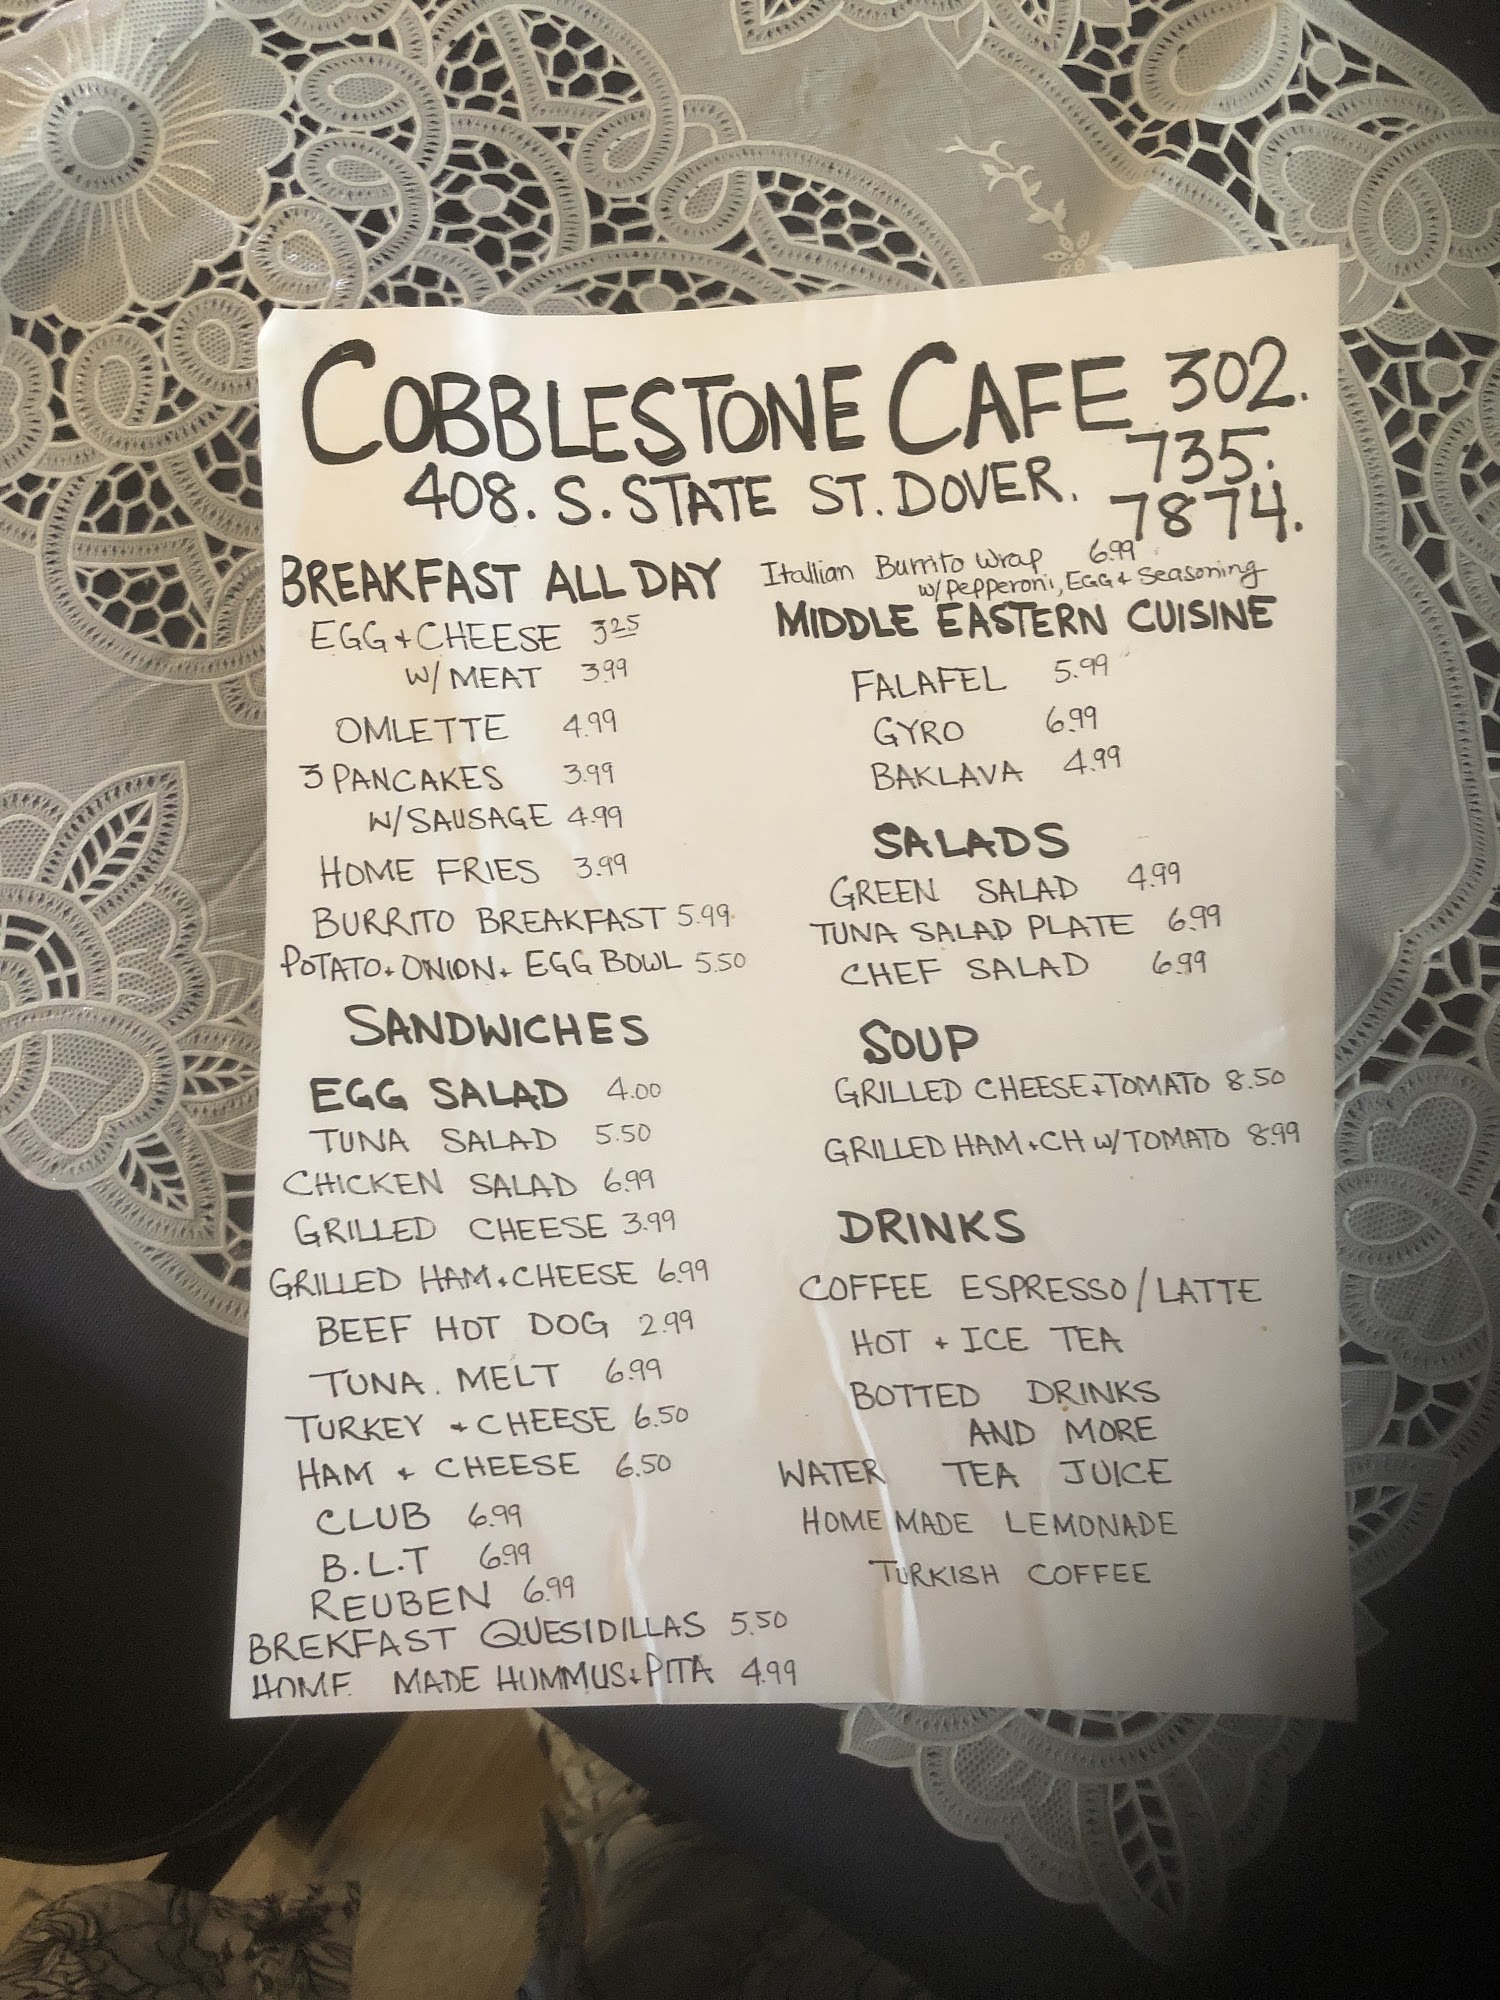 COBBLESTONE CAFE 302.
735.
7874.
408. S. STATE ST. DOVER.
BREAKFAST ALL DAY
EGG + CHEESE 3.25
W/ MEAT 3.99
OMLETTE 4.99
3 PANCAKES 3.99
W/ SAUSAGE 4.99
HOME FRIES 3.99
BURRITO BREAKFAST 5.99
POTATO + ONION + EGG BOWL 5.50
SANDWICHES
EGG SALAD 4.00
TUNA SALAD 5.50
CHICKEN SALAD 6.99
GRILLED CHEESE 3.99
GRILLED HAM + CHEESE 6.99
BEEF HOT DOG 2.99
TUNA. MELT 6.99
TURKEY + CHEESE 6.50
HAM + CHEESE 6.50
CLUB 6.99
B.L.T 6.99
REUBEN 6.99
BREKFAST QUESIDILLAS 5.50
HOME MADE HUMMUS + PITA 4.99
Itallian Burrito Wrap 6.99
w/ Pepperoni, EGG + Seasoning
MIDDLE EASTERN CUISINE
FALAFEL 5.99
GYRO 6.99
BAKLAVA 4.99
SALADS
GREEN SALAD 4.99
TUNA SALAD PLATE 6.99
CHEF SALAD 6.99
SOUP
GRILLED CHEESE + TOMATO 8.50
GRILLED HAM + CH W/ TOMATO 8.99
DRINKS
COFFEE ESPRESSO / LATTE
HOT + ICE TEA
BOTTED DRINKS
AND MORE
WATER TEA JUICE
HOME MADE LEMONADE
TURKISH COFFEE